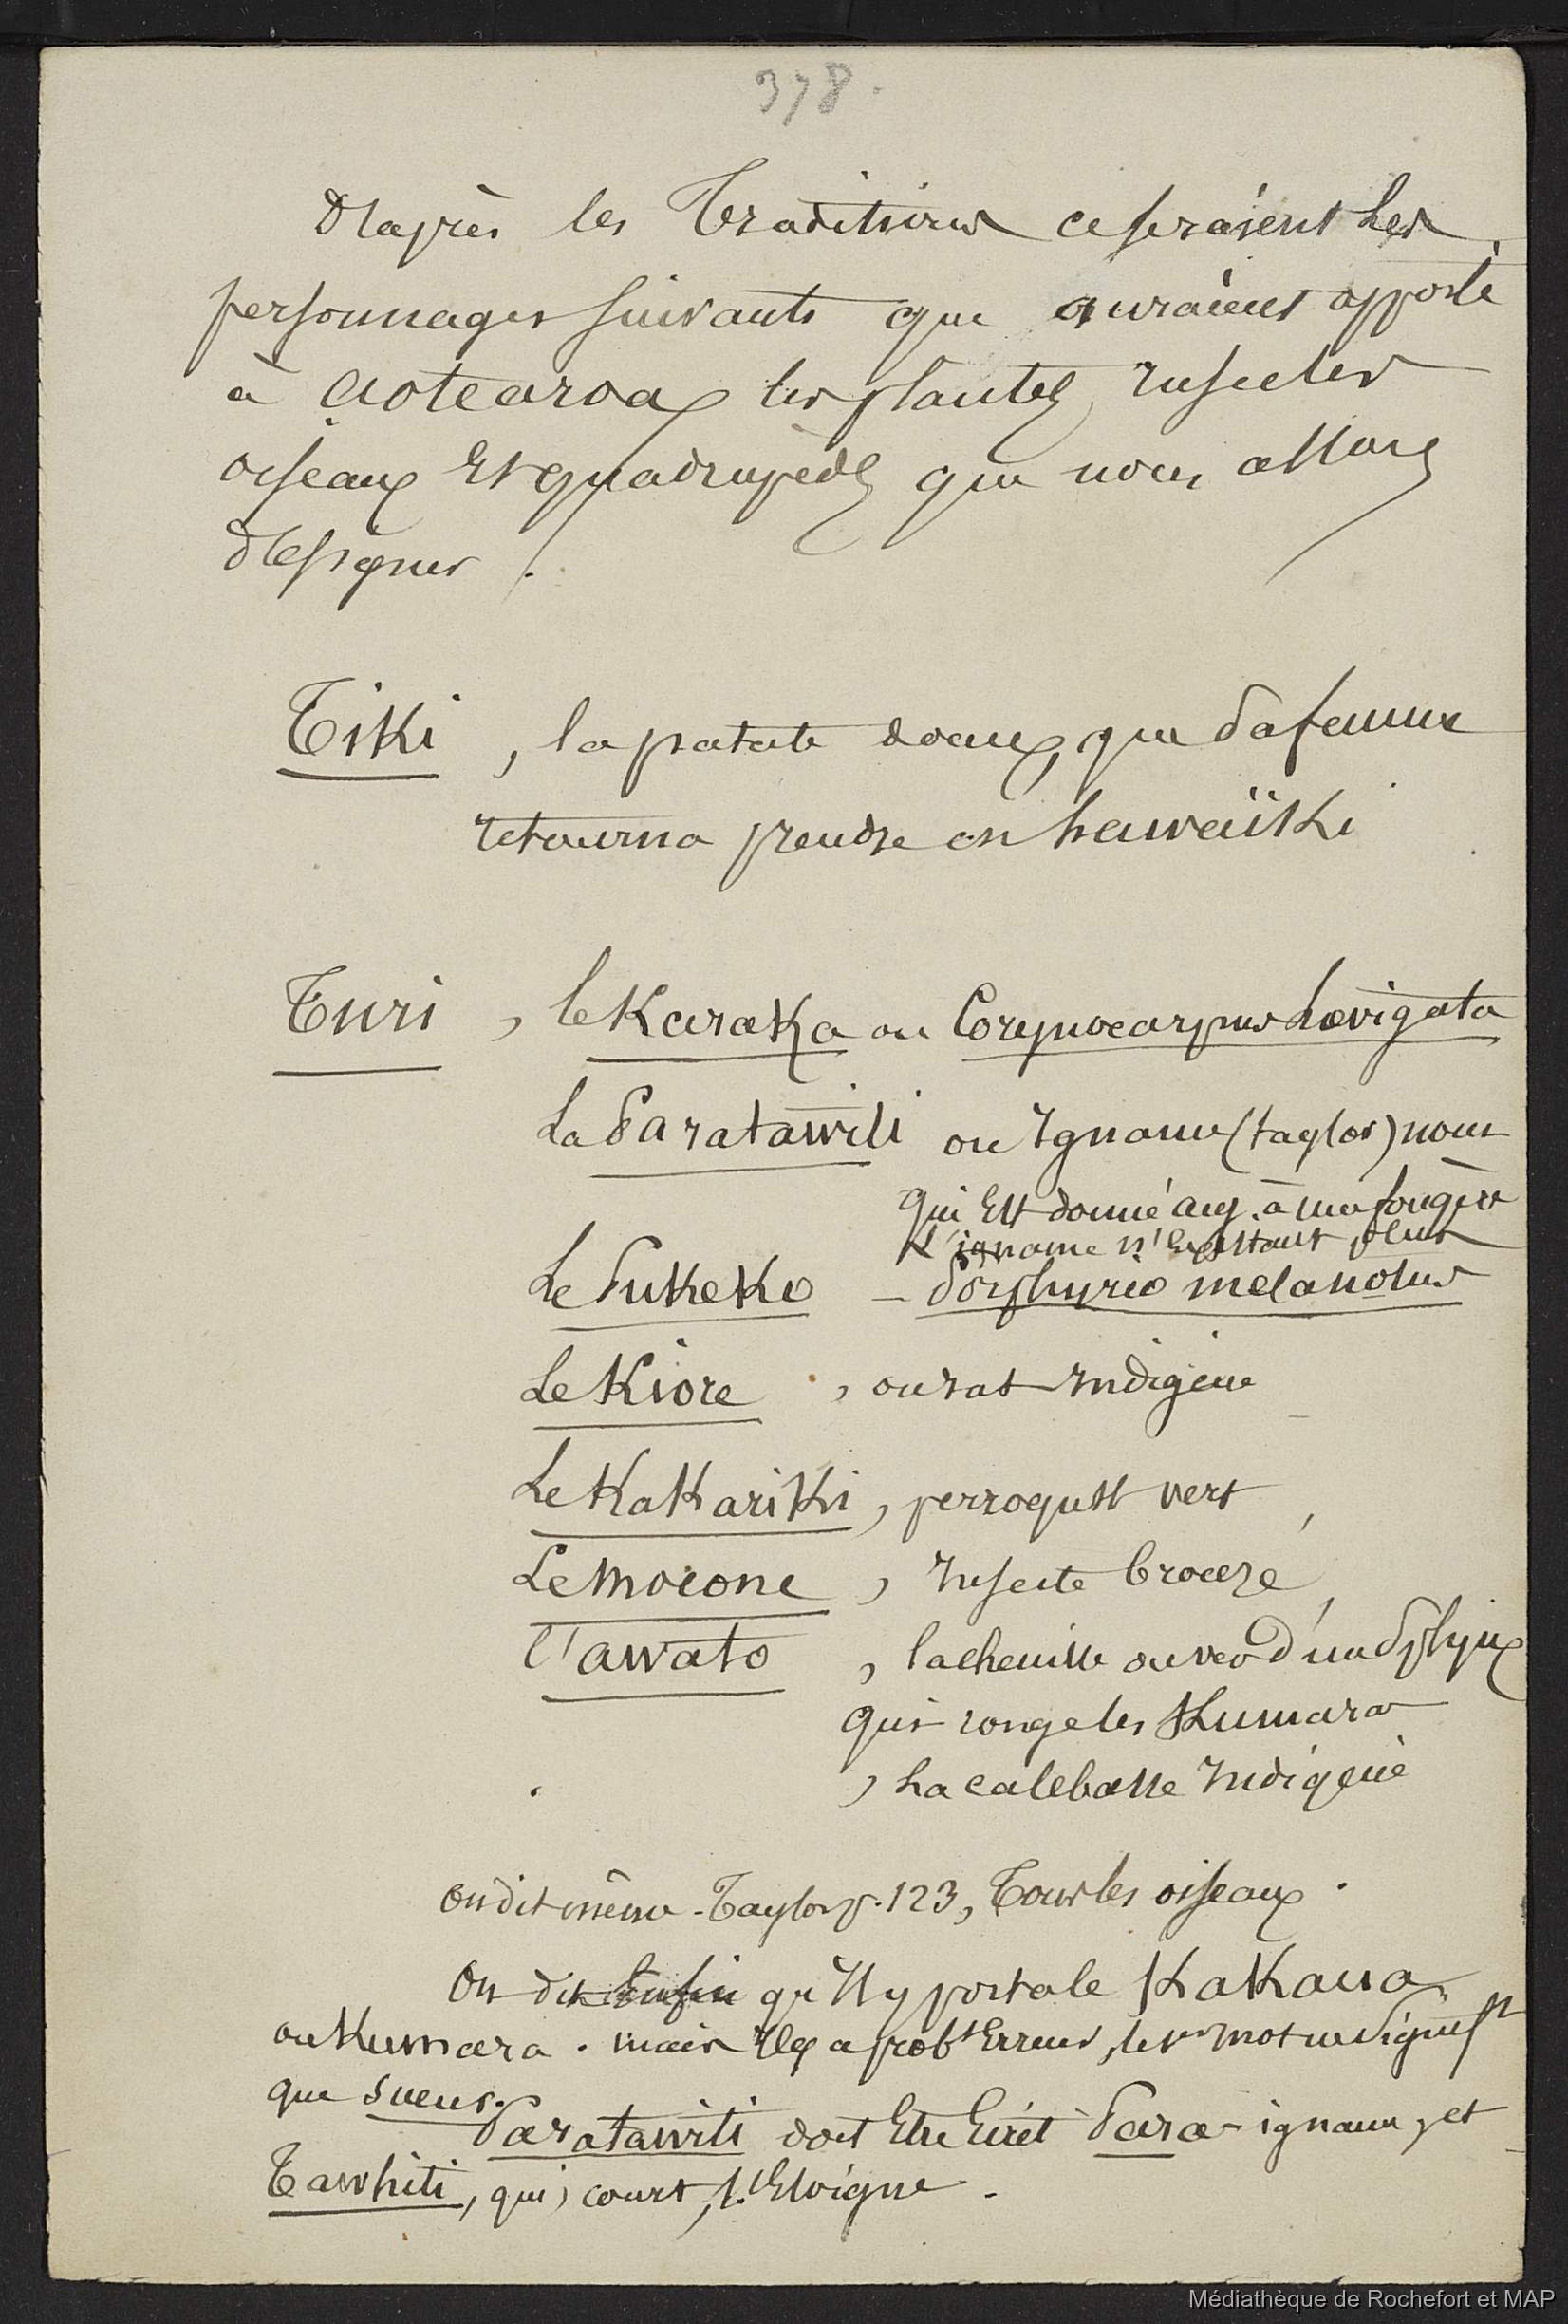 378.
D'après les Traditions ce seraient les
personnages suivants que auraient apporté
à aotearoa les plantes, Insectes
oiseaux Et quadrupèdes que nous allons
désigner :
Tiki, la patate douce, que Sa femme
retourna prendre en hawaïki
Turi, le Karaka ou Corynocarpus Lævigata
La Paratawiti ou Igname (taylor) nom
qui Est donné auj. à une fougère
L'igname n'Existant plus
Le Pukeko – Porphyrio melanotus
Le Kiore, ou rat Indigène
Le Kakariki, perroquet vert
Le moeone, Insecte bronzé
l'awato, la chenille ou ver d'un Sphynx
qui ronge les Kumara
, La calebasse Indigène
on dit même - Taylor p. 123, Tous les oiseaux.
On dit Enfin qu'Il y porta le Kakaua
ou Kumara. mais Il y a probt Erreur, le 1er mot ne signift
que sueur.
Paratawiti doit Etre Ecrit Para - igname, et
Tawhiti, qui court, s'Eloigne.
Médiathèque de Rochefort et MAP